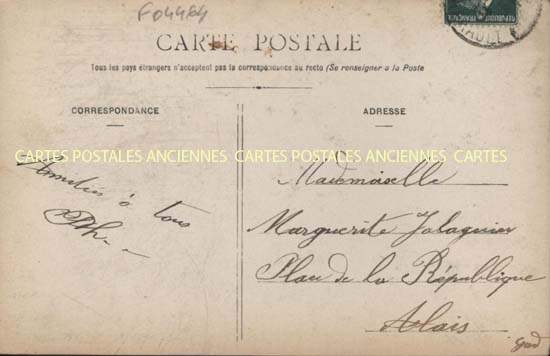 F04464
CARTE POSTALE
Tous les pays étrangers n'acceptent pas la correspondance au recto (Se renseigner a la Poste
CORRESPONDANCE
ADRESSE
CARTES POSTALES ANCIENNES CARTES POSTALES ANCIENNES CARTES
Amitiés à tous
Mademoiselle
Marguerite Jalaguier
Place de la République
Alais
Gard